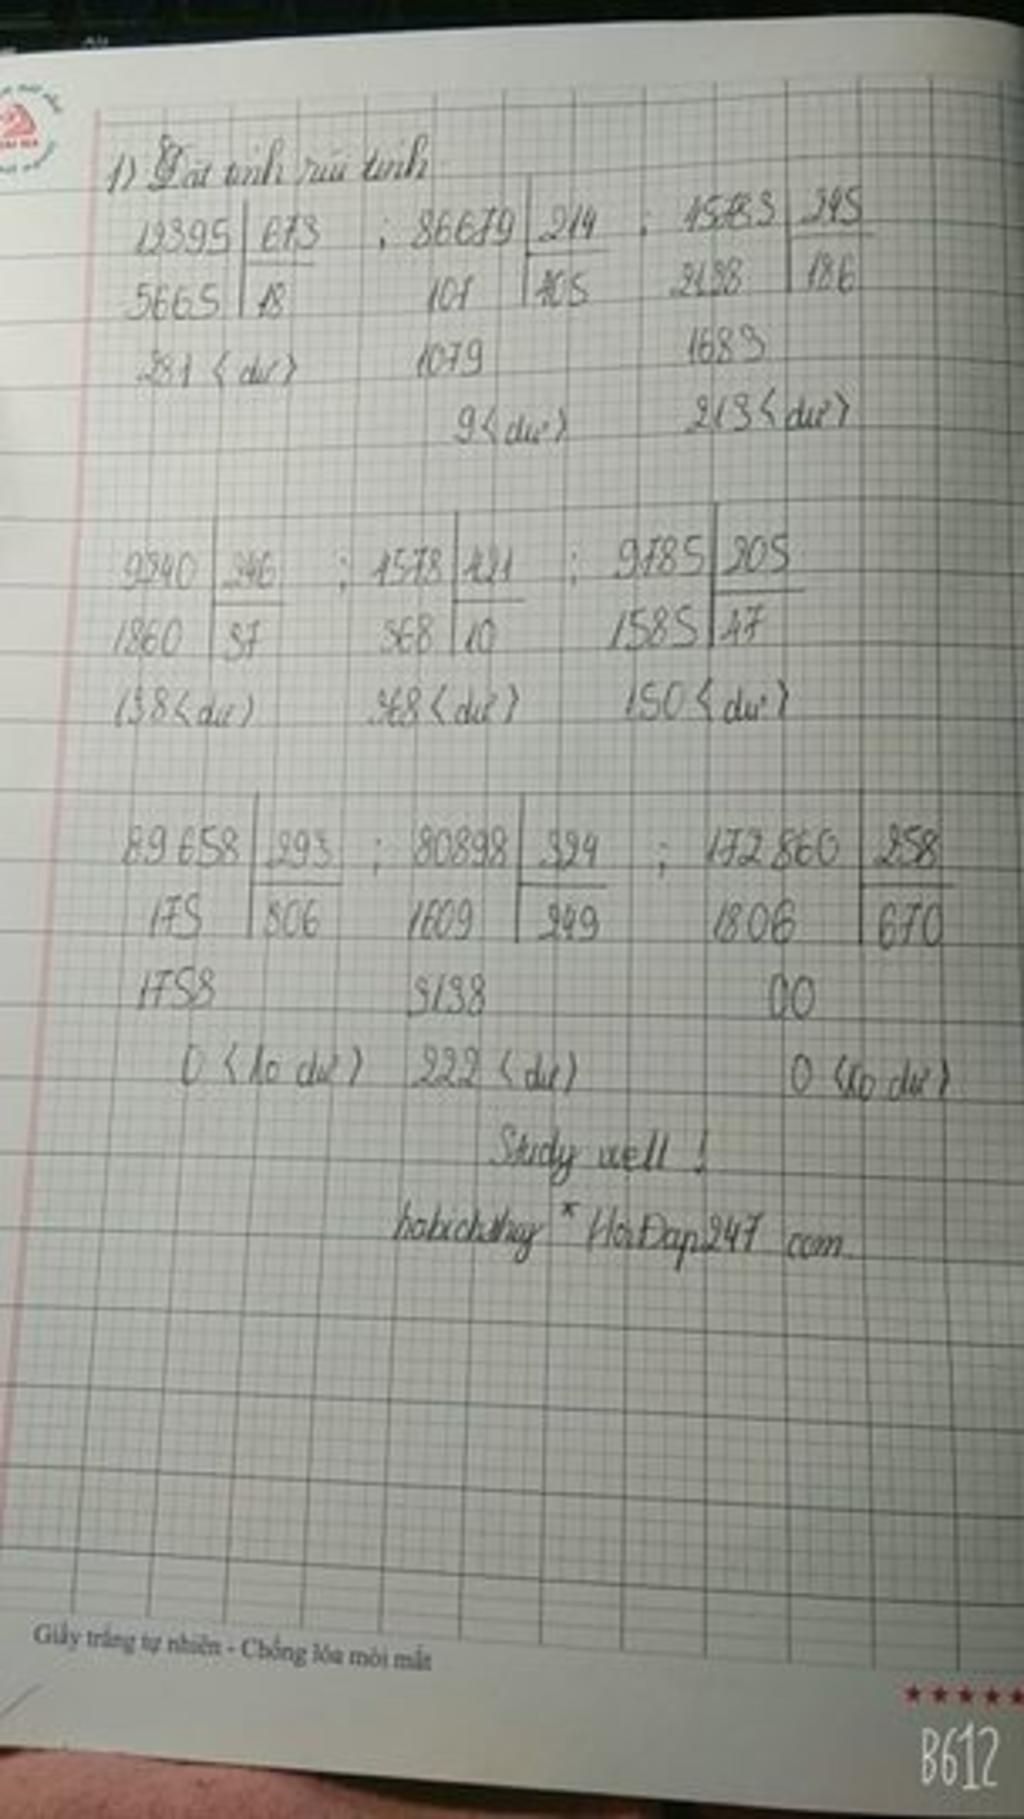 1) Đặt tính rồi tính
12395 673 ; 86679 214 ; 45783 245
5665 18 101 405 2128 186
281 (dư) 1079 1683
9 (dư) 213 (dư)
9240 246 ; 4578 421 ; 9785 205
1860 37 368 10 1585 47
138 (dư) 368 (dư) 150 (dư)
89658 293 ; 80898 324 ; 172860 258
175 306 1609 249 1806 670
1758 3138 00
0 (ko dư) 222 (dư) 0 (ko dư)
Study well !
habichthuy * HoiDap247 com
Giấy trắng tự nhiên - Chống lóa mỏi mắt
B612